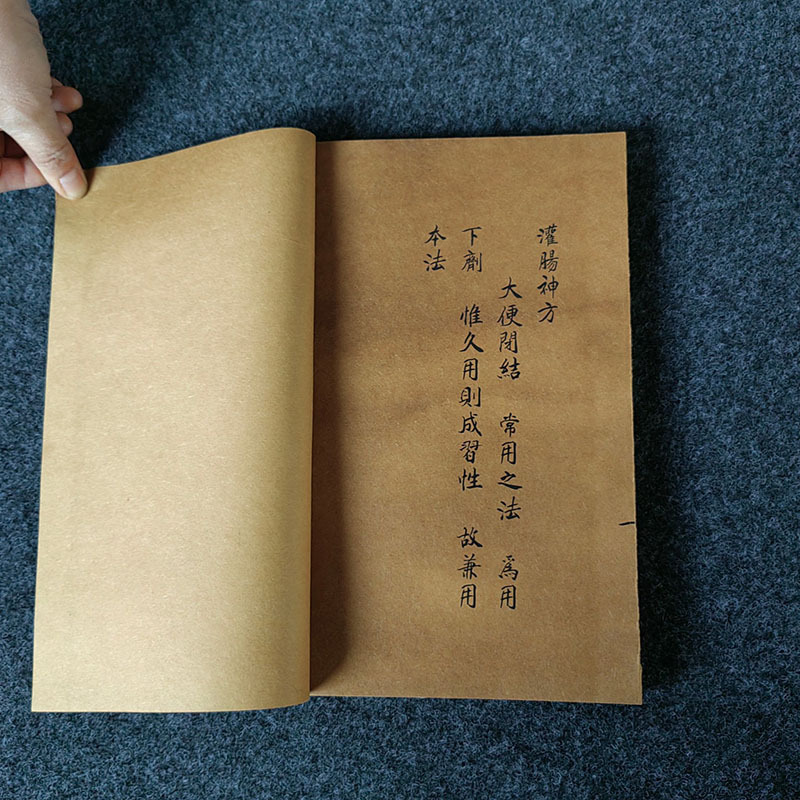 灌腸神方
大便閉結 常用之法 爲用
下劑 惟久用則成習性 故兼用
本法
一